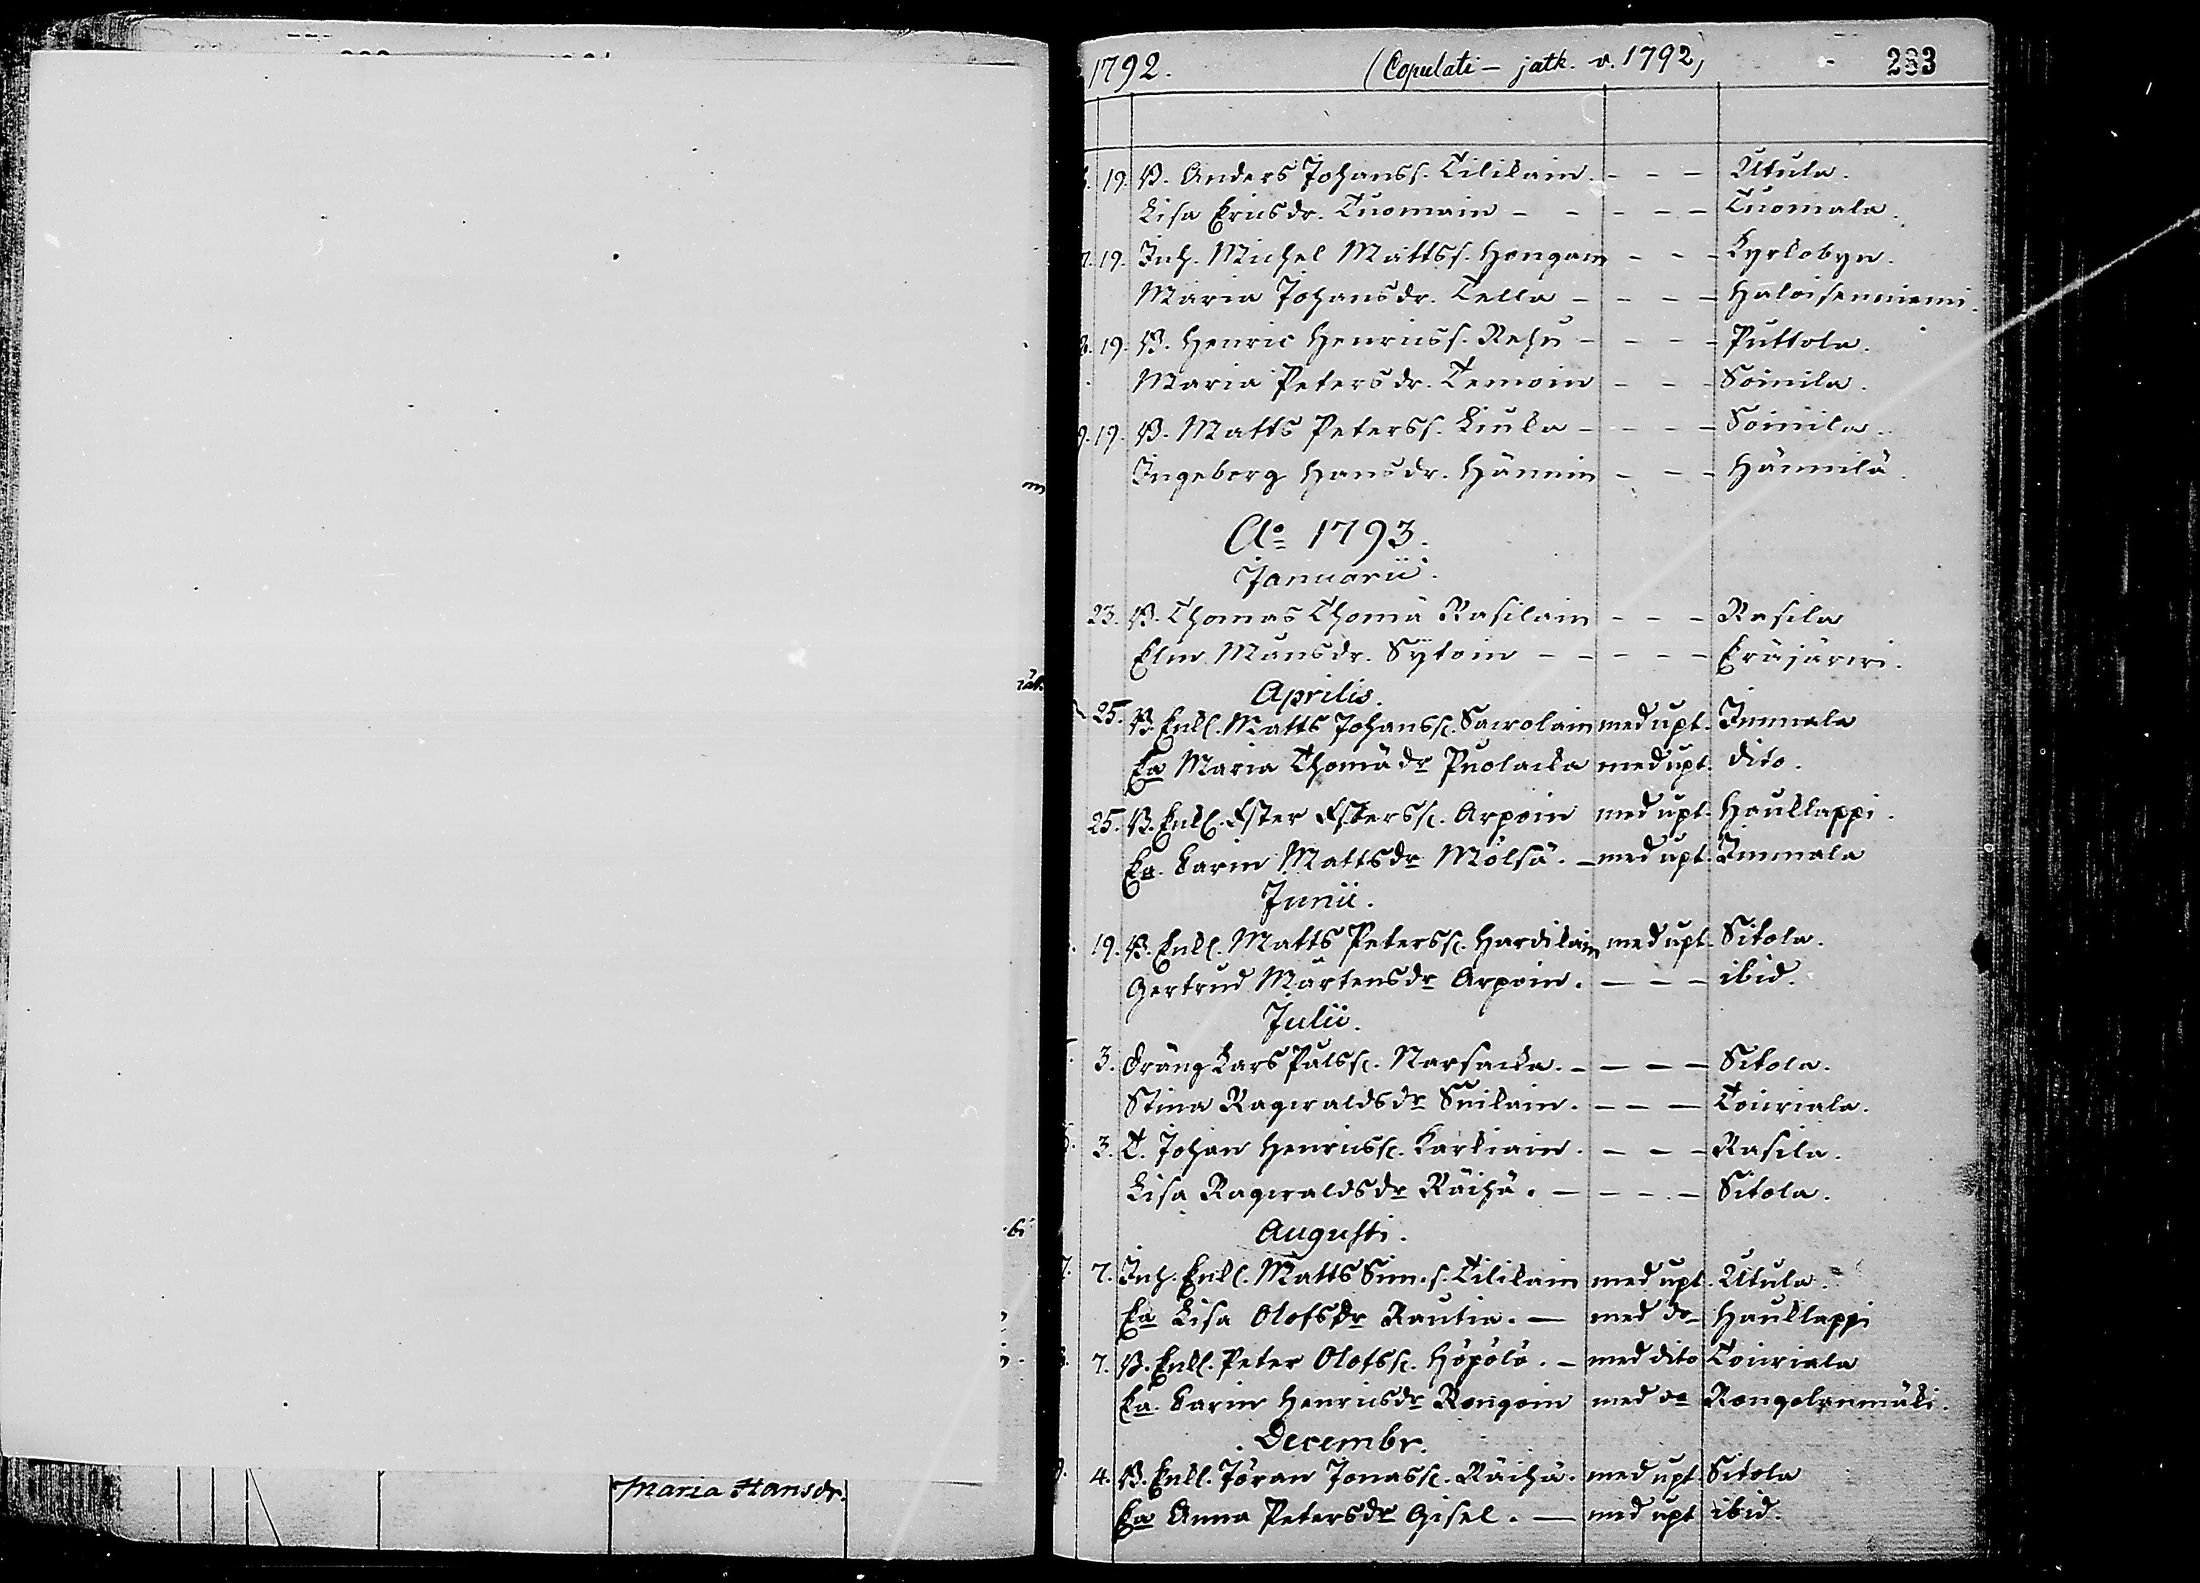 1792. (Copulati - jatk. v. 1792) 283
19. B. Anders Johanss. Tilikain. - - - Utula.
Lisa Ericsdr. Tuomain - - - - - Tuomala.
19. Inh. Michel Mattss. Hongain - - - Kyrkobyn.
Maria Johansdr. Tella - - - - Haloisenniemi.
19. B. Henric Henricss. Rehu - - - - Puttola.
Maria Petersdr. Temoin - - - Soinila.
19. B. Matts Peterss. Liuka - - - - Soinila.
Ingeborg Hansdr. Hännin - - - Hännilä.
Ao 1793.
Januarii.
23. B. Thomas Thomä Rasilain - - - Rasila
Elin Månsdr. Sytoin - - - - - Eräjärvi.
Aprilis.
25. B. Enkl. Matts Johanss. Savolain med upt. Immala
Ea Maria Thomädr Puolacka med upt. dito.
25. B. Enkl. Ester Esterss. Arpoin med upt. Haukkappi.
Ea. Karin Mattsdr Mölsä. - med upt. Immala
Junii.
19. B. Enkl. Matts Peterss. Hardikain med upt. Sitola.
Gertrud Mårtensdr Arpoin. - - - ibid.
Julii.
3. Dräng Lars Pålss. Narsacka. - - - - Sitola.
Stina Ragvaldsdr Suikain. - - - Touriala.
3. T. Johan Henricss. Karkiain. - - - Rasila.
Lisa Ragvaldsdr Räihä. - - - - Sitola.
Augusti.
7. Inh. Enkl. Matts Sim.s. Tilikain med upt. Utula.
Ea Lisa Olofsdr Rautia. - med do Haukkappi
7. B. Enkl. Peter Olofss. Höpölö. - med dito Touriala
Ea. Karin Henricsdr Rongoin med do Rongolanmäki.
Decembr.
4. B. Enkl. Jöran Jonass. Räihä. med upt. Sitola
Ea Anna Petersdr Gisel. - med upt ibid.
Maria Hansdr.